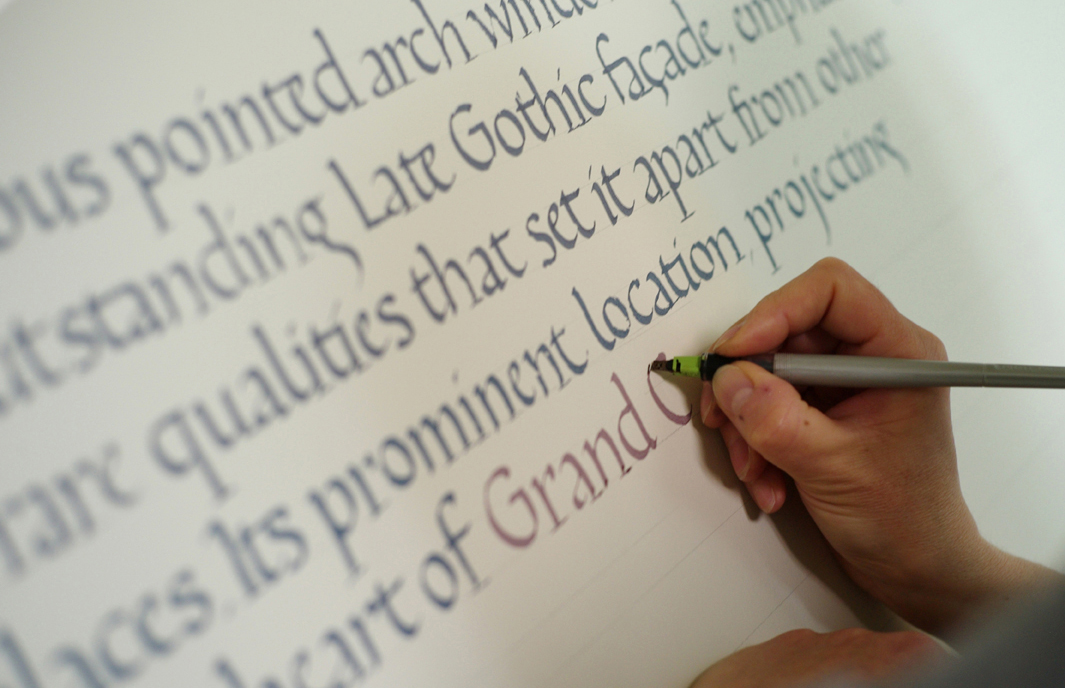 ous pointed arch windo
utstanding Late Gothic façade, empha
rare qualities that set it apart from other
laces. Its prominent location, projecting
heart of Grand C